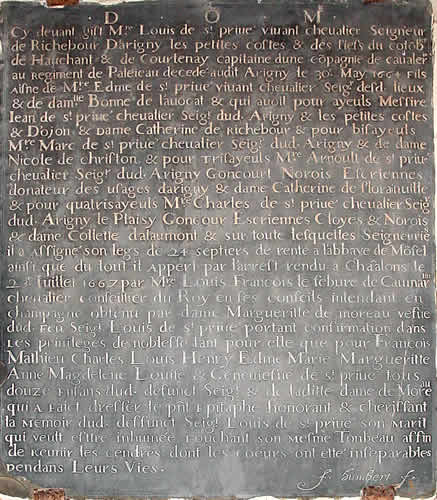 D O M
Cy devant gist Mre Louis de st priue vivant chevalier Seigneur
de Richebour Darigny les petites costes & des fiefs du
de Hauchant & de Courtenay capitaine dune copagnie de cavaler
au regiment de Paleicau decede audit Arigny le 30e May 1664 fils
Aisne de Mre Edme de st priue vivant chevalier Seigr desd. lieux
& de damlle Bonne de lavocat & qui avoit pour ayeuls Messire
Iean de st priue chevalier Seigr dud. Arigny & les petites costes
& Dojon & dame Catherine de richebour & pour bisayeuls
Mre Marc de st priue chevalier Seigr dud. Arigny & de dame
Nicole de christon & pour Trisayeuls Mre Arnoult de st priue
chevalier Seigr dud. Arigny Goncourt Norois Escriennes
donateur des usages darigny & dame Catherine de
& pour quatrisayeuls Mre Charles de st priue chevalier Seig
dud. Arigny le Plaisy Goncour Escriennes Cloyes & Norois
& dame Collette dalaumont & sur toute lesquelles Seigneurie
il a assigne son legs de 24 septiers de rente a labbaye de
ainsi que du tout il appert par larrest rendu a Chaalons le
Iuillet 1667 par Mre Louis Francois le febure de Caumar
chevalier conseillier du Roy en ses conseils intendant en
champagne obtenu par dame Margueritte de moreau vefue
dud. feu Seigr Louis de st priue portant confirmation dans
les privileges de noblesse tant pour elle que pour Francois
Mathieu Charles Louis Henry Edme Marie Margueritte
Anne Magdelene Louise & Geneuiefue de st priue tous
douze enfans dud. defunct Seigr & de laditte dame de
qui a faict dresser le pnt Epitaphe honorant & cherissant
la memoir dud. deffunct Seigr Louis de st priue son marit
qui veult estre inhumee touchant son mesme Tombeau affin
de reunir les cendres dont les coeurs ont esté inseparables
pendans Leurs Vies.
f. humbert f.